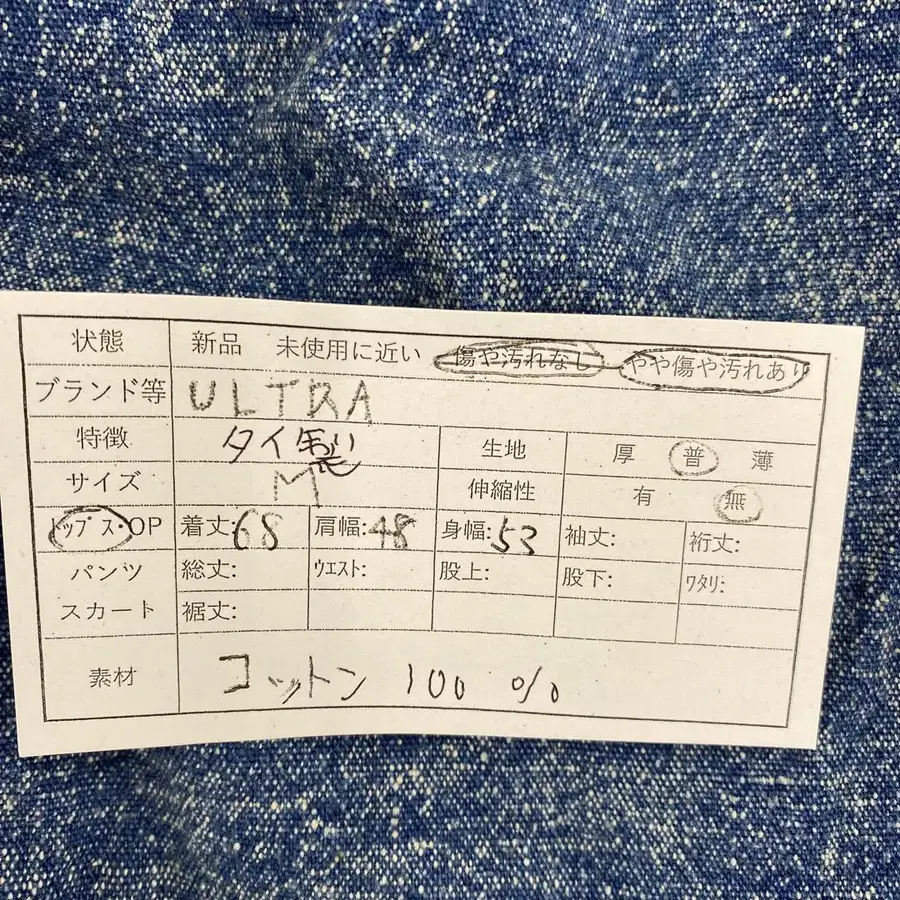 状態 新品 未使用に近い 傷や汚れなし やや傷や汚れあり
ブランド等 ULTRA
特徴 タイ製 生地 厚 普 薄
サイズ M 伸縮性 有 無
トップス・OP 着丈:68 肩幅:48 身幅:53 袖丈: 裄丈:
パンツ 総丈: ウエスト: 股上: 股下: ワタリ:
スカート 裾丈:
素材 コットン 100 %